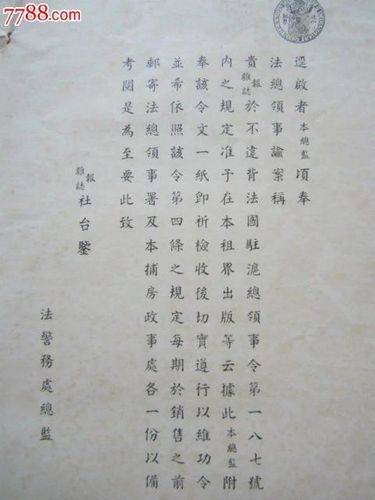 7788.com
逕啟者本總監頃奉
法總領事諭案稱
貴報雜誌於不違背法國駐滬總領事令第一八七號
內之規定准予在本租界出版等云據此本總監附
奉該令文一紙即祈檢收後切實遵行以維功令
並希依照該令第四條之規定每期於銷售之前
郵寄法總領事署及本捕房政事處各一份以備
考閱是為至要此致
報雜誌社台鑒
法警務處總監